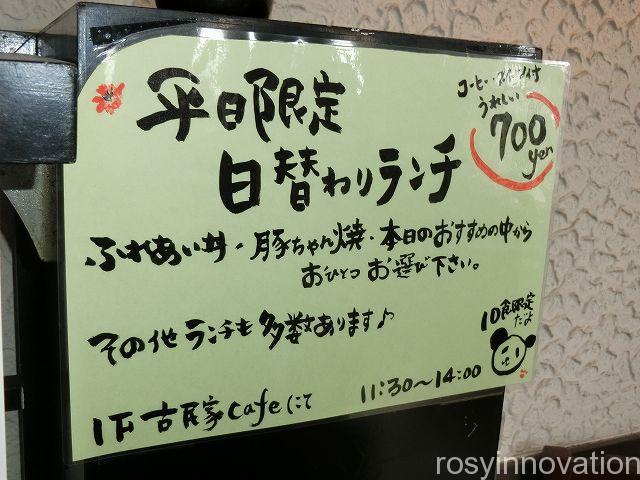 平日限定
日替わりランチ
コーヒー・スイーツ付
うれしい
700
yen
ふれあい丼・豚ちゃん焼・本日のおすすめの中から
おひとつ お選び下さい。
その他 ランチも 多数あります♪
10食限定
だよ
1F 古民家cafeにて
11:30～14:00
rosyinnovation